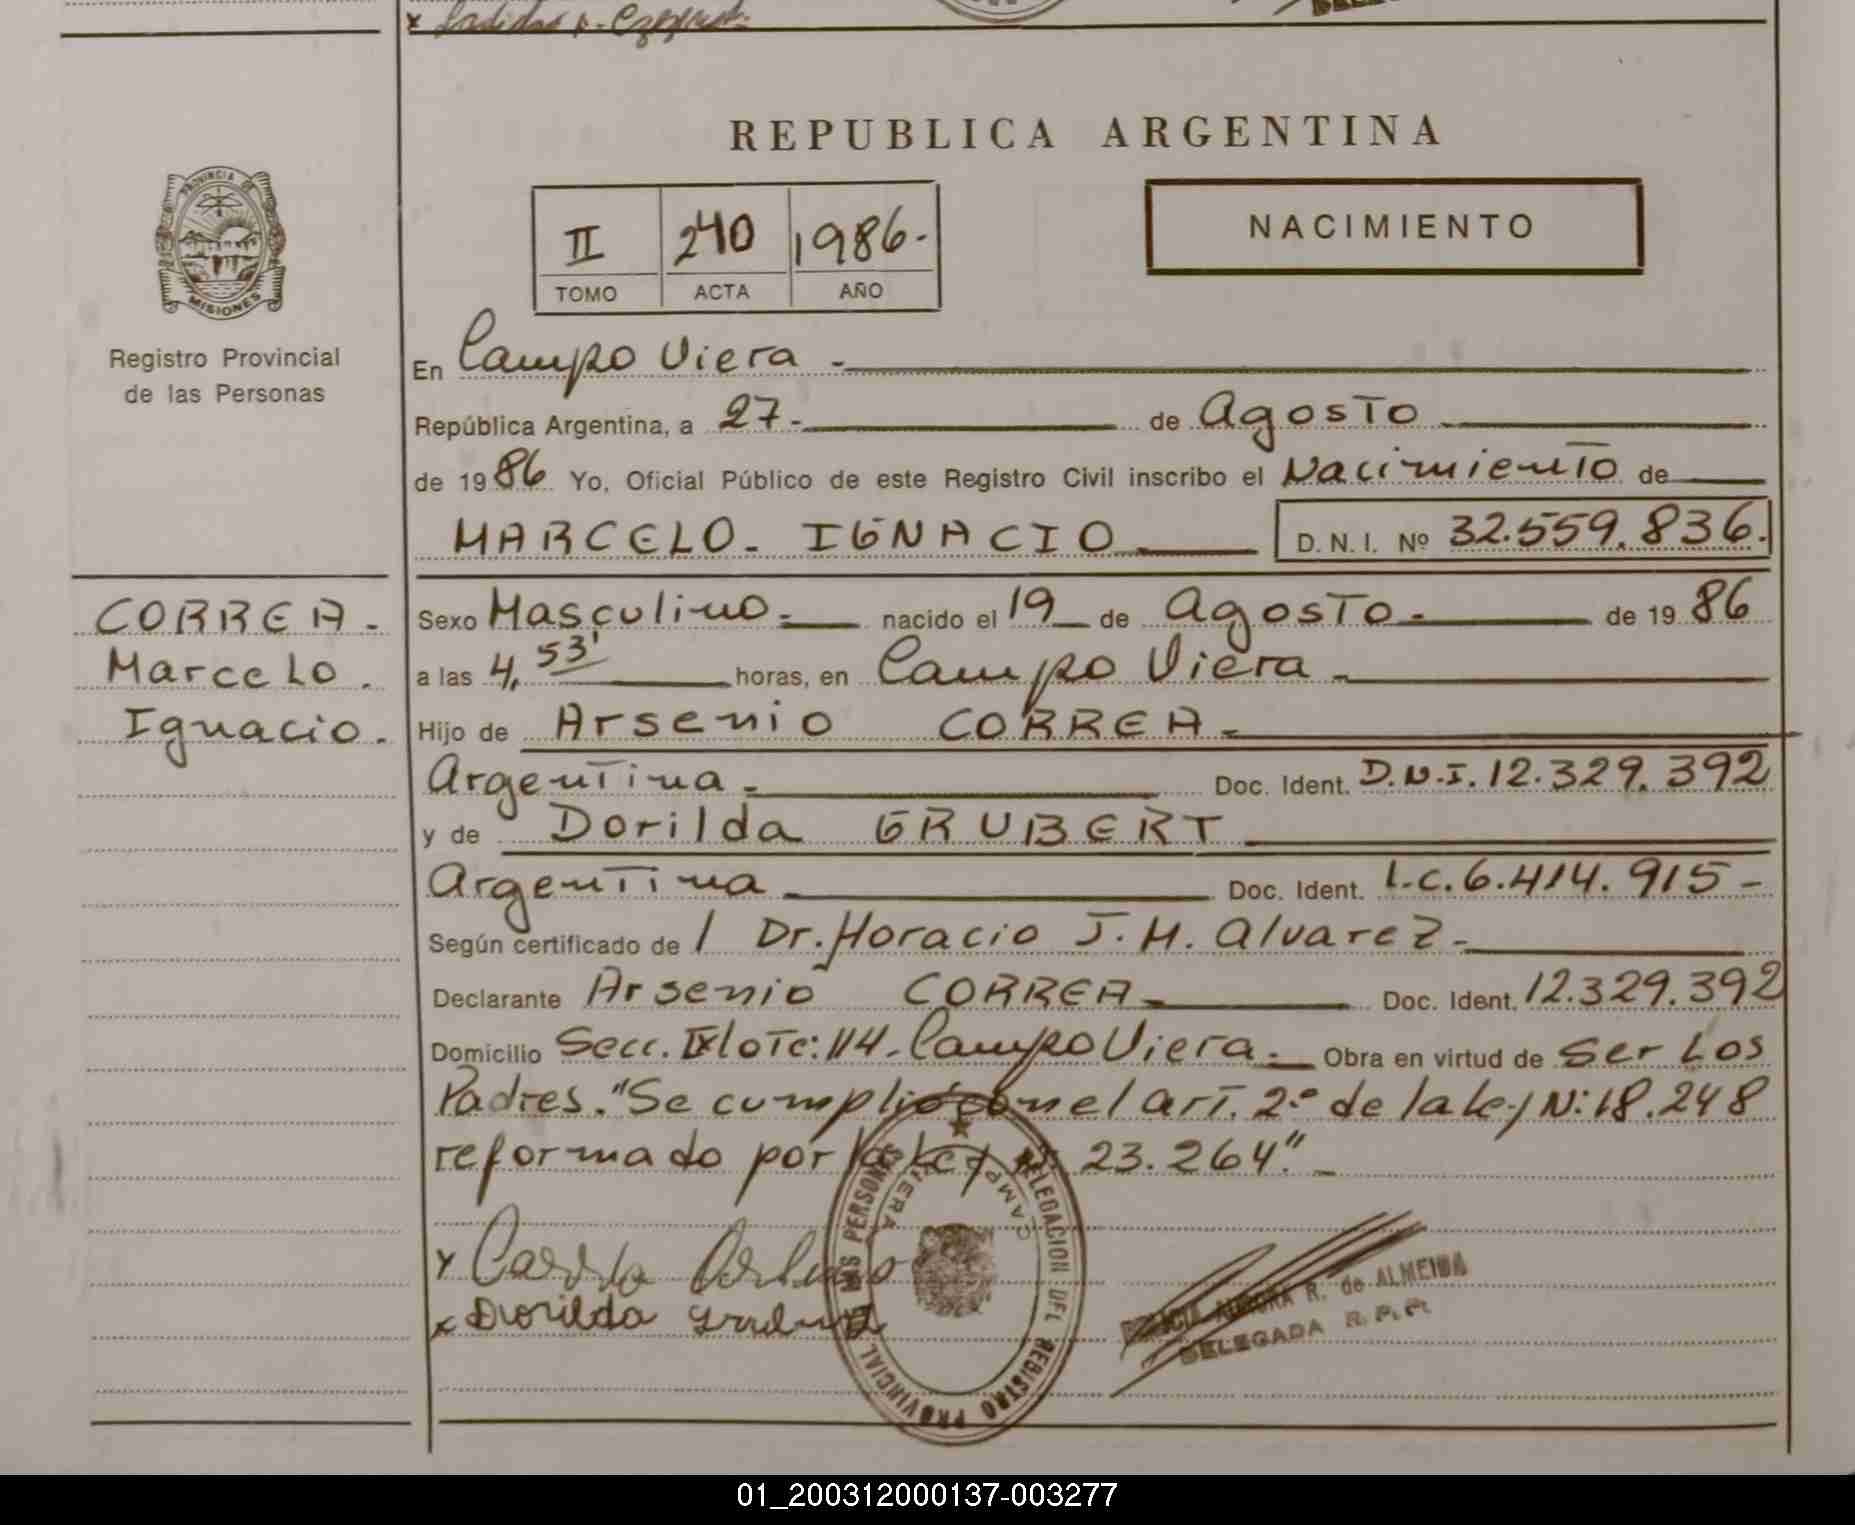 REPUBLICA ARGENTINA
PROVINCIA DE
MISIONES
Registro Provincial
de las Personas
II 240 1986.-
TOMO ACTA AÑO
NACIMIENTO
En Campo Viera.-
República Argentina, a 27.- de Agosto
de 1986 Yo, Oficial Público de este Registro Civil inscribo el Nacimiento de
MARCELO. IGNACIO D. N. I. Nº 32.559.836.
CORREA.
Marcelo.
Ignacio.
Sexo Masculino.- nacido el 19 de Agosto.- de 1986
a las 4,53' horas, en Campo Viera.-
Hijo de Arsenio CORREA.-
Argentina.- Doc. Ident. D.N.I. 12.329.392
y de Dorilda GRUBERT
Argentina Doc. Ident. L.C. 6.414.915-
Según certificado de / Dr. Horacio J.M. Alvarez.-
Declarante Arsenio CORREA.- Doc. Ident. 12.329.392
Domicilio Secc. IX lote: 114. Campo Viera.- Obra en virtud de ser los
Padres. "Se cumplió con el art. 2º de la ley N: 18.248
reformado por la ley Nº 23.264".-
x Dorilda
DELEGACION DEL REGISTRO PROVINCIAL DE LAS PERSONAS
CAMPO VIERA
AURORA R. de ALMEIDA
DELEGADA R.P.P.
01_200312000137-003277